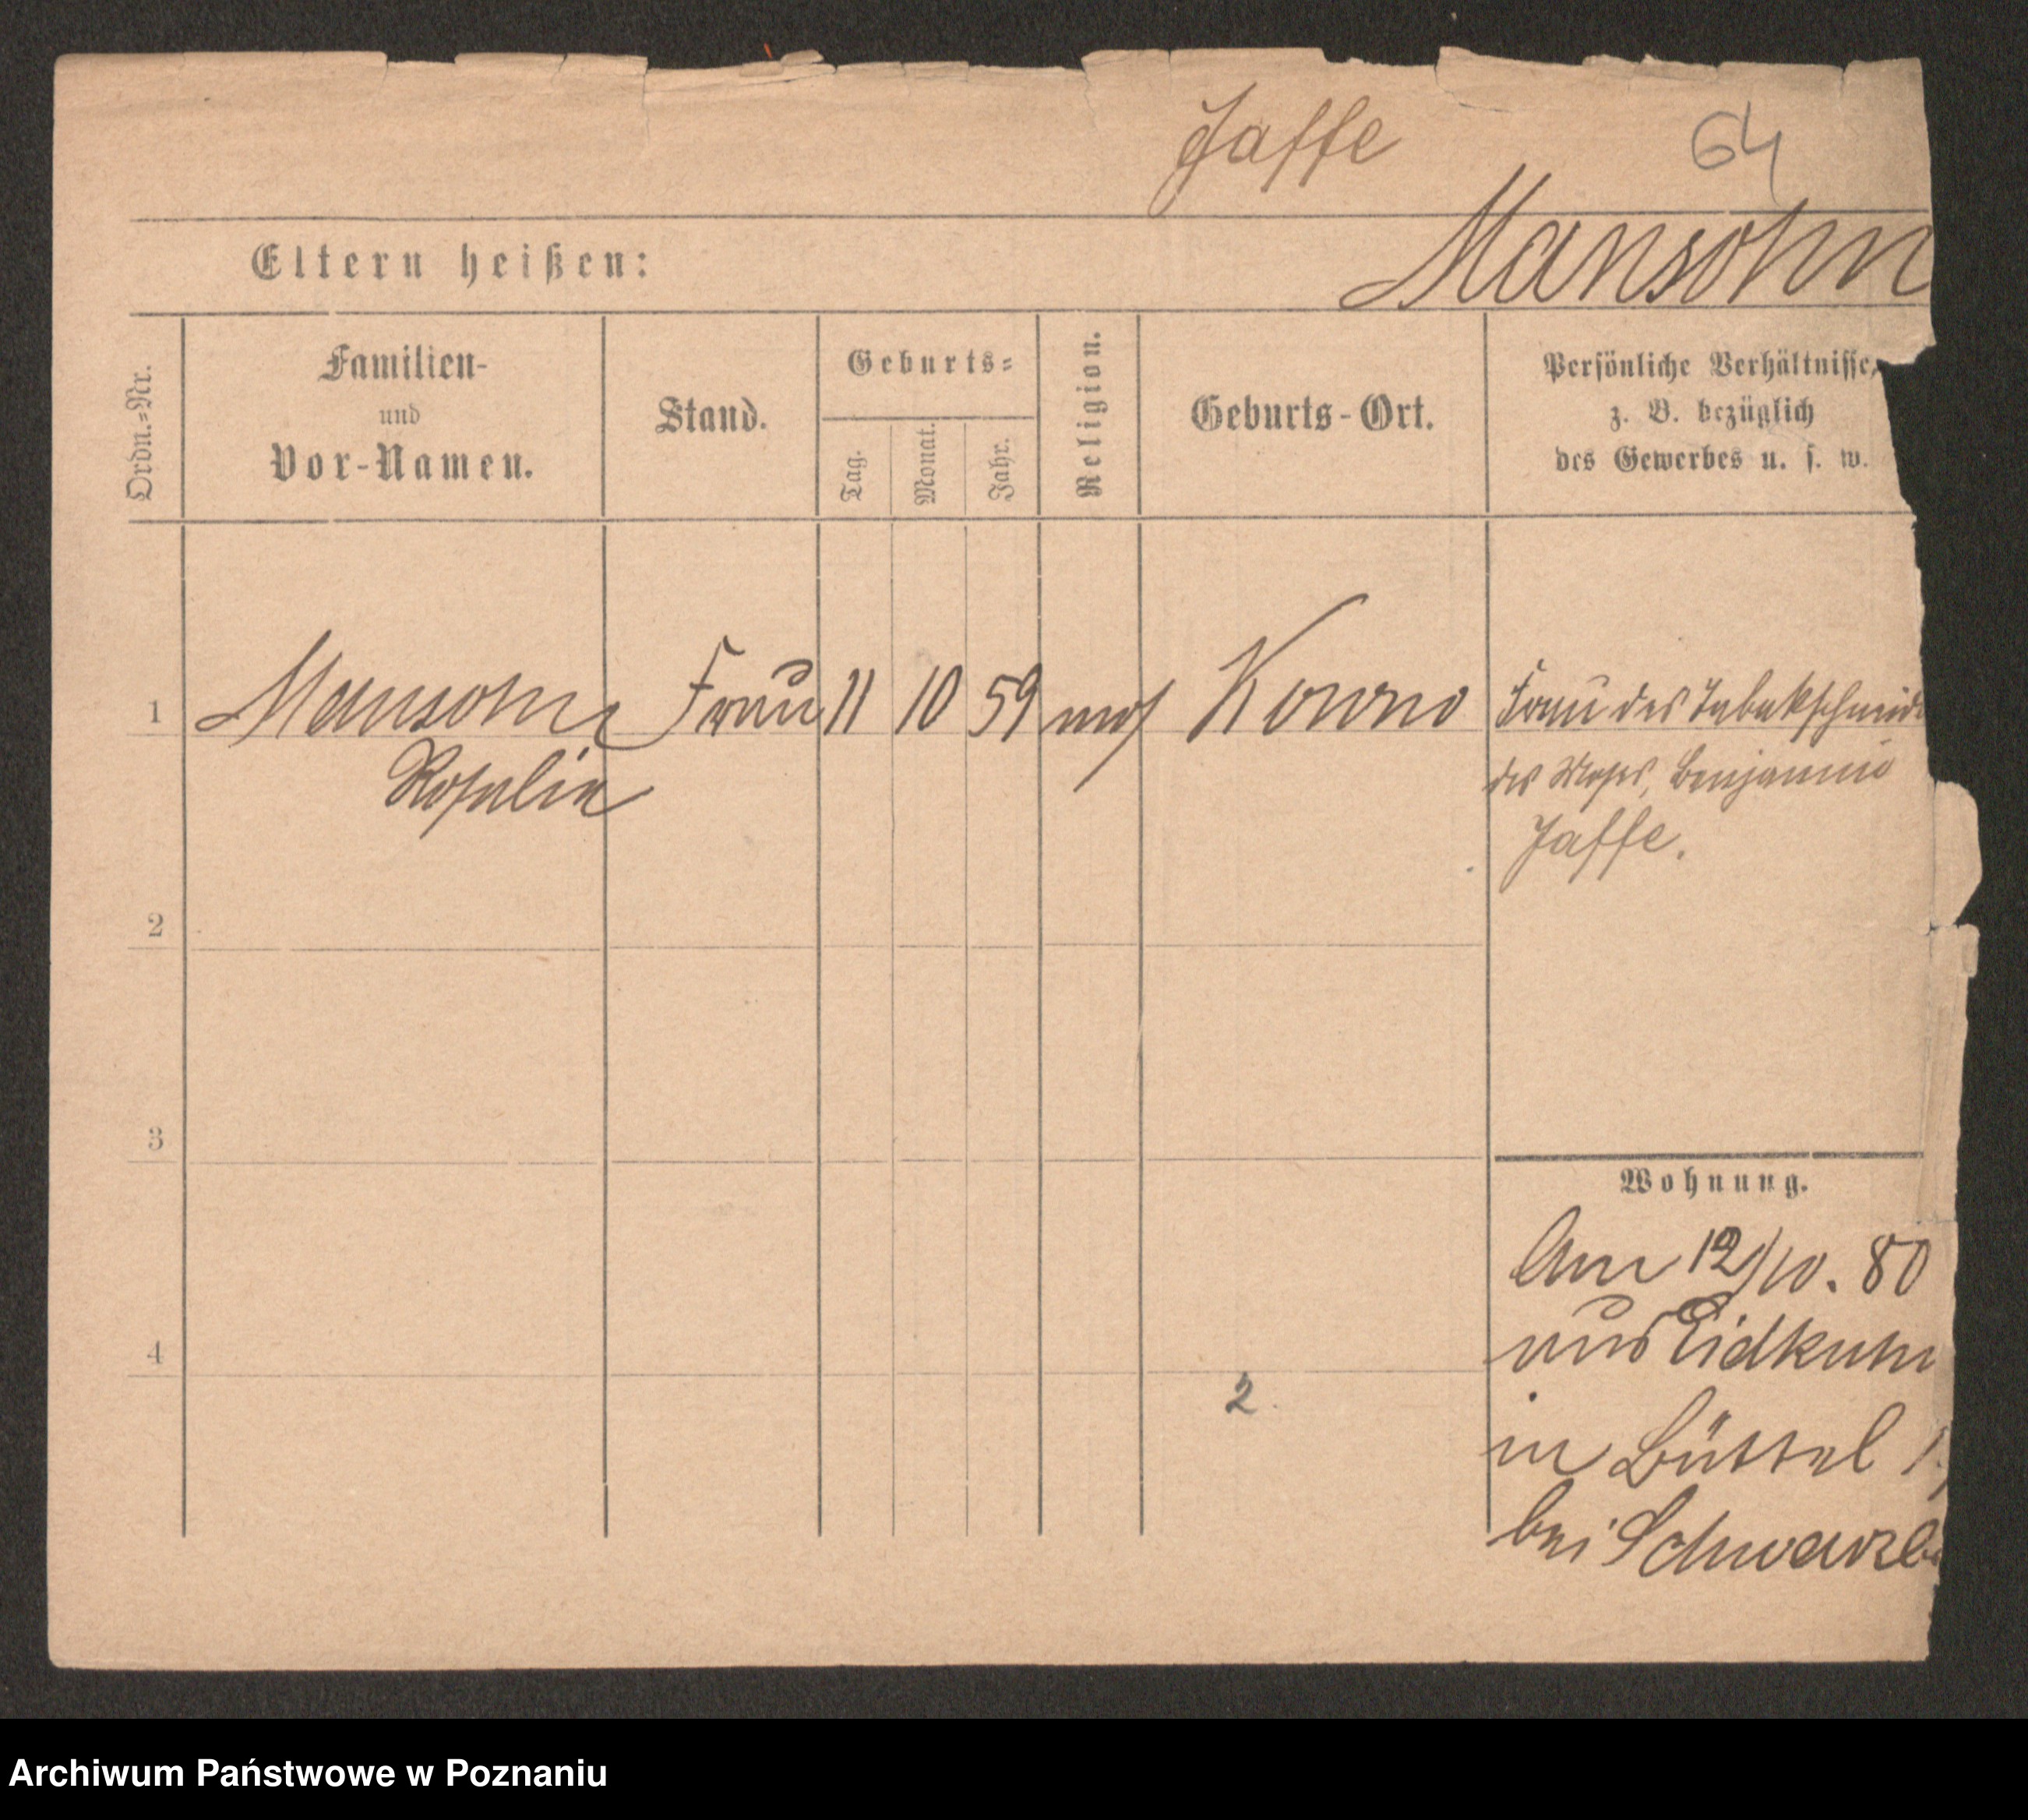 Jaffe
64
Mansohn
Eltern heißen:
Ordn.=Nr.
Familien-
und
Vor-Namen.
Stand.
Geburts=
Tag.
Monat.
Jahr.
Religion.
Geburts-Ort.
Persönliche Verhältnisse,
z. B. bezüglich
des Gewerbes u. s. w.
1 Mansohn Frau 11 10 59 mos Kowno Frau des Tabakschneid
Rosalie
des Moses, Benjamin
Jaffe.
2
3
Wohnung.
Am 12/10. 80
aus Eidkuhn
4
2
in Büttel
bei Schwarz
Archiwum Państwowe w Poznaniu